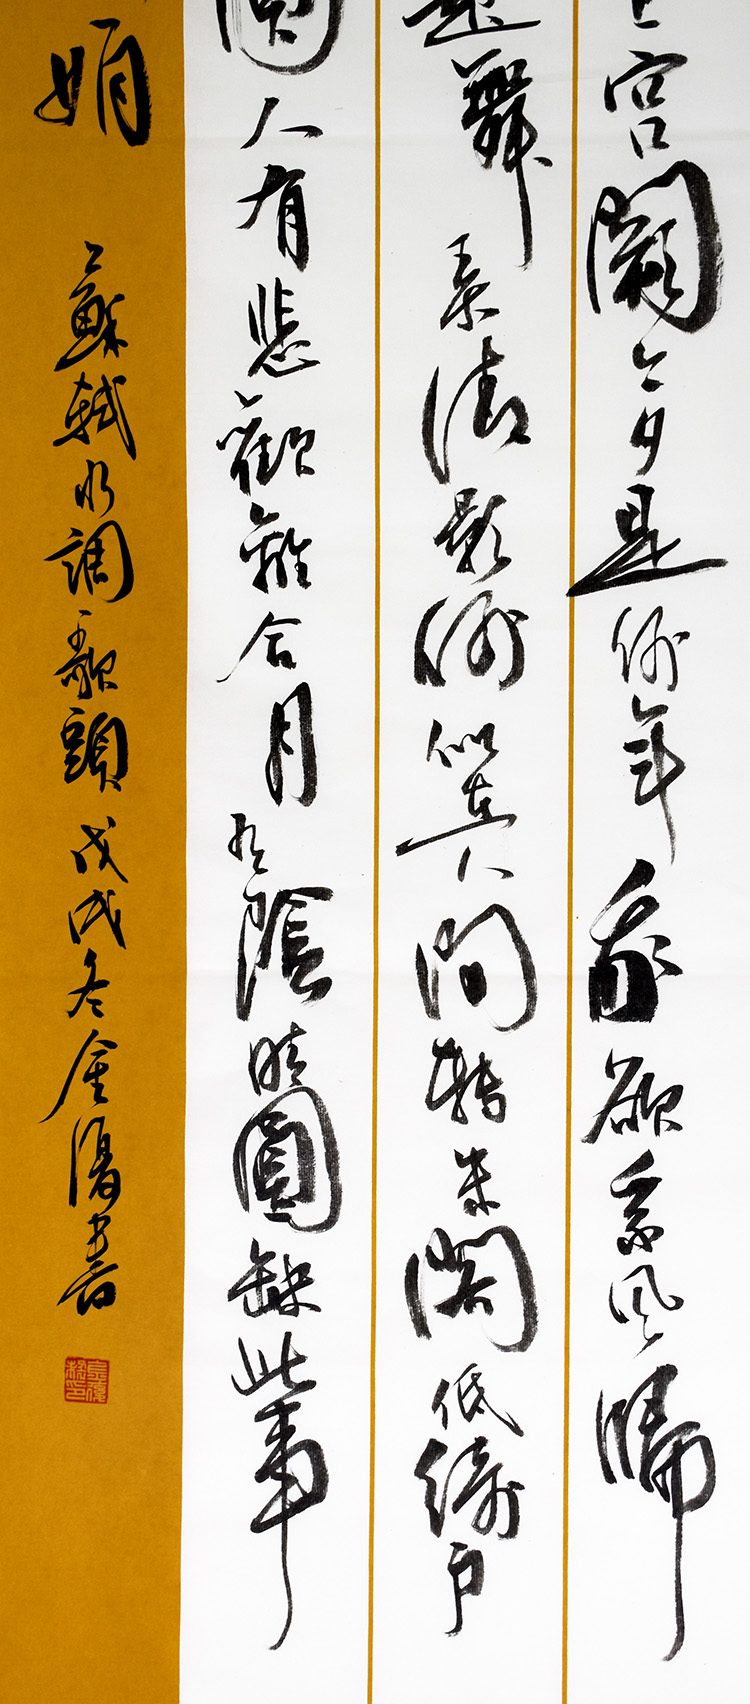 上宮闕今夕是何年我欲乘風歸
起舞弄清影何似在人間轉朱閣低綺戶
圓人有悲歡離合月有陰晴圓缺此事
娟
蘇軾水調歌頭戊戌冬金書